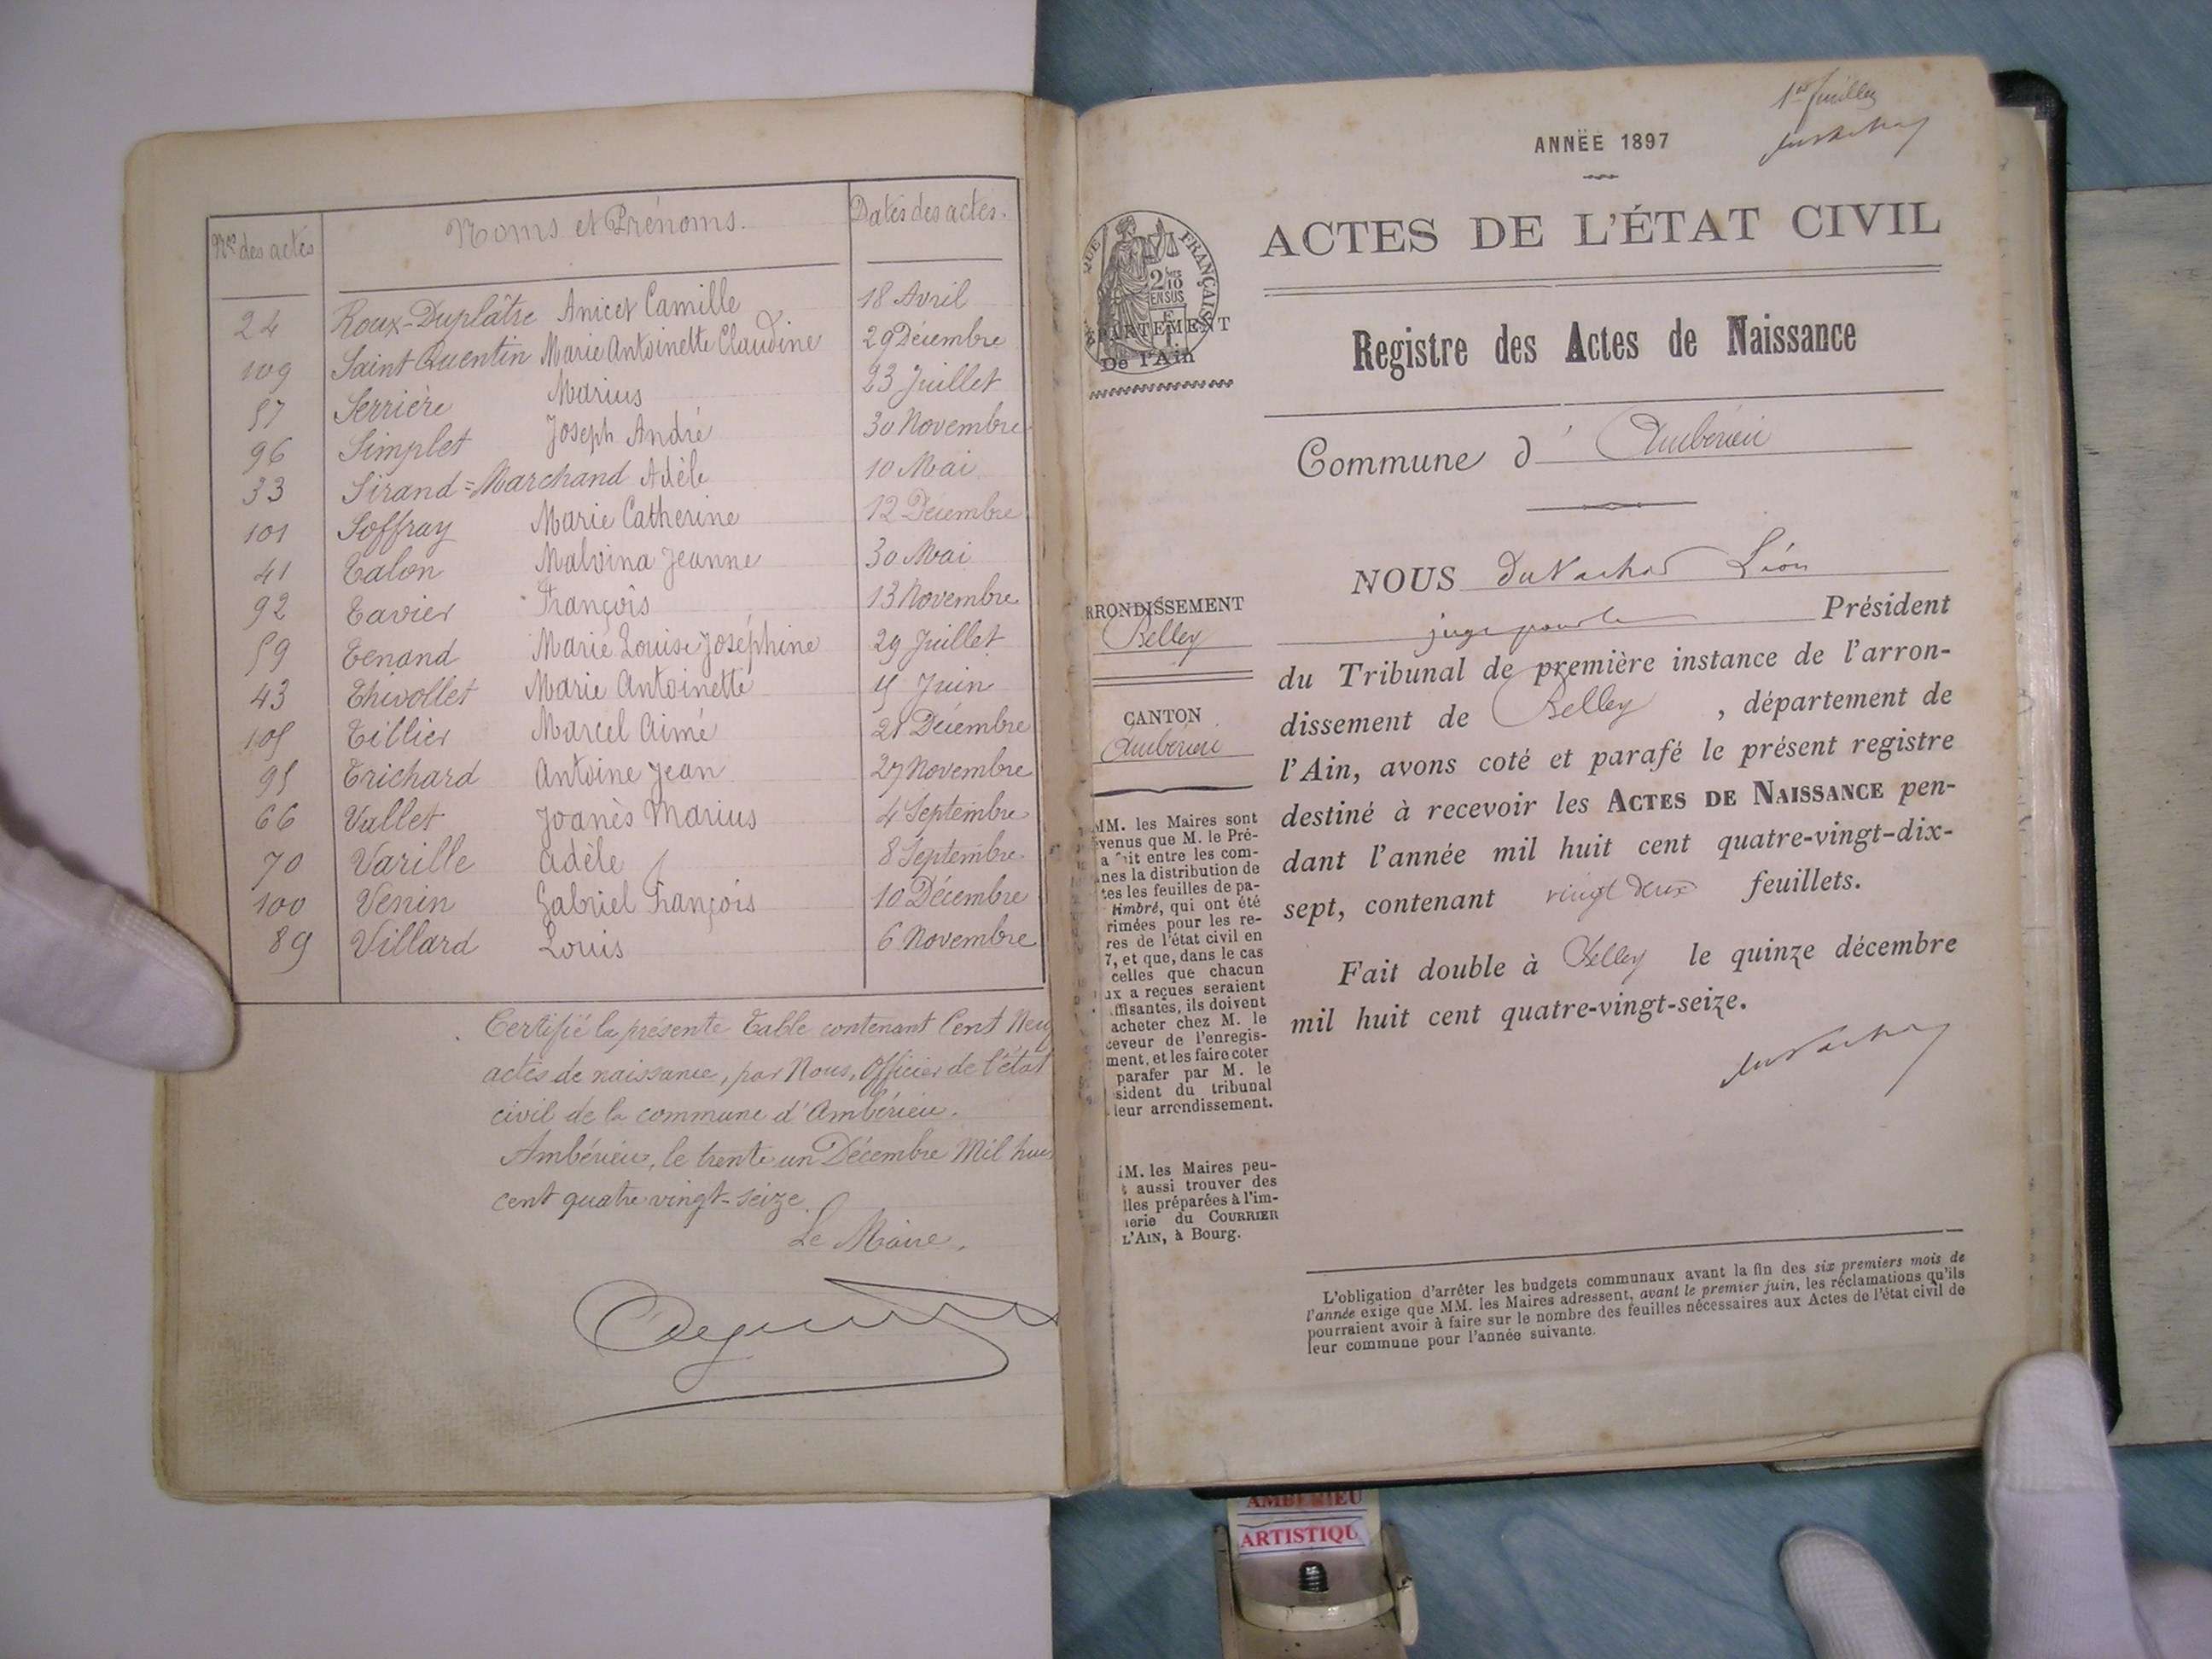 Nos des actes Noms et Prénoms. Dates des actes.
24 Roux-Duplâtre Anicet Camille 18 Avril
109 Saint Quentin Marie Antoinette Claudine 29 Décembre
57 Serrière Marius 23 Juillet
96 Simplet Joseph André 30 Novembre
33 Sirand=Marchand Adèle 10 Mai
101 Soffray Marie Catherine 12 Décembre
41 Talon Malvina Jeanne 30 Mai
92 Tavier François 13 Novembre
59 Tenand Marie Louise Joséphine 29 Juillet
43 Thivollet Marie Antoinette Juin
105 Tillier Marcel Aimé 21 Décembre
95 Trichard Antoine Jean 27 Novembre
66 Vallet Joanès Marius 4 Septembre
70 Varille Adèle 8 Septembre
100 Venin Gabriel François 10 Décembre
89 Villard Louis 6 Novembre
Certifié la présente Table contenant Cent Neuf
actes de naissance, par Nous, Officier de l'état
civil de la commune d'Ambérieu.
Ambérieu, le trente un Décembre Mil hui
cent quatre vingt-seize.
Le Maire,
1er feuillet
ANNËE 1897
ACTES DE L'ÉTAT CIVIL
QUE FRANÇAISE
2/10
EN SUS
DÉPARTEMENT
De l'Ain
Registre des Actes de Naissance
Commune d' Ambérieu
NOUS Léon
juge pour le Président
du Tribunal de première instance de l'arron-
dissement de Belley, département de
l'Ain, avons coté et parafé le présent registre
destiné à recevoir les ACTES DE NAISSANCE pen-
dant l'année mil huit cent quatre-vingt-dix-
sept, contenant vingt deux feuillets.
Fait double à Belley le quinze décembre
mil huit cent quatre-vingt-seize.
RRONDISSEMENT
Belley
CANTON
Ambérieu
MM. les Maires sont
évenus que M. le Pré-
a fait entre les com-
nes la distribution de
tes les feuilles de pa-
timbré, qui ont été
rimées pour les re-
res de l'état civil en
7, et que, dans le cas
celles que chacun
ux a reçues seraient
ffisantes, ils doivent
acheter chez M. le
ceveur de l'enregis-
ment, et les faire coter
parafer par M. le
sident du tribunal
leur arrondissement.
MM. les Maires peu-
t aussi trouver des
lles préparées à l'im-
erie du COURRIER
L'AIN, à Bourg.
L'obligation d'arrêter les budgets communaux avant la fin des six premiers mois de
l'année exige que MM. les Maires adressent, avant le premier juin, les réclamations qu'ils
pourraient avoir à faire sur le nombre des feuilles nécessaires aux Actes de l'état civil de
leur commune pour l'année suivante.
AMBERIEU
ARTISTIQU